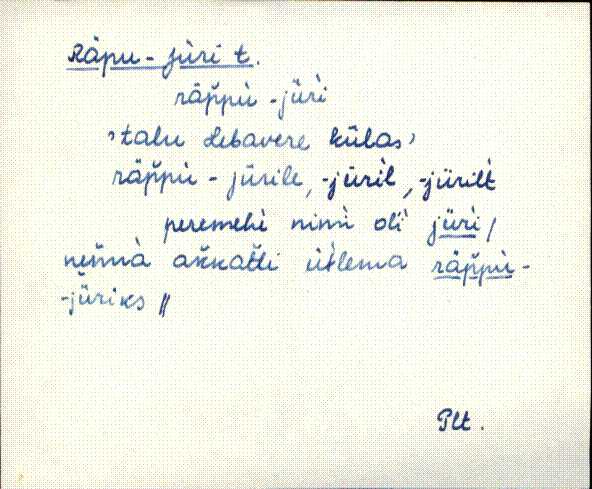 Räpu-Jüri t.
räp̆pù-jür̀i
'talu Lebavere külas'
räp̆pù-jürile, -jür̀il, -jür̀ilt
peremehè nimì olì jür̀i /
nem̆mà ak̆kat̆ti ütlema räp̆pù-
-jür̀iks //
Plt.